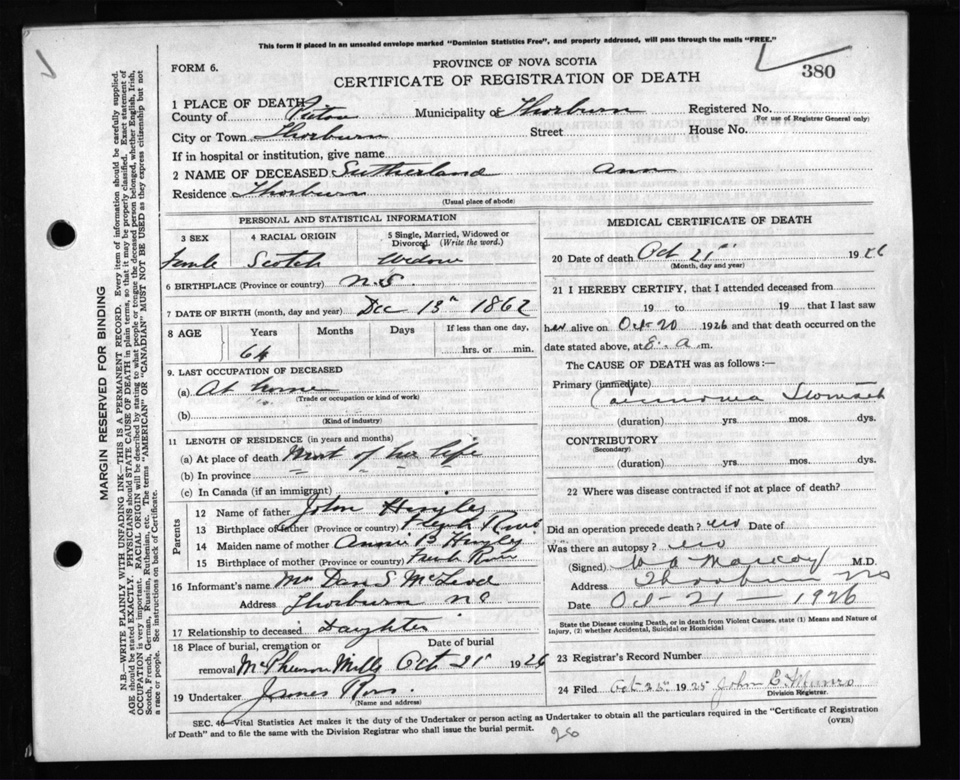 This form if placed in an unsealed envelope marked "Dominion Statistics Free", and properly addressed, will pass through the mails "FREE."
FORM 6.
PROVINCE OF NOVA SCOTIA
CERTIFICATE OF REGISTRATION OF DEATH
380
1 PLACE OF DEATH
County of Pictou Municipality of Thorburn Registered No.
(For use of Registrar General only)
City or Town Thorburn Street House No.
If in hospital or institution, give name
2 NAME OF DECEASED Sutherland Ann
Residence Thorburn
(Usual place of abode)
MARGIN RESERVED FOR BINDING
N.B.—WRITE PLAINLY WITH UNFADING INK—THIS IS A PERMANENT RECORD. Every item of information should be carefully supplied.
AGE should be stated EXACTLY. PHYSICIANS should STATE CAUSE OF DEATH in plain terms, so that it may be properly classified. Exact statement of
OCCUPATION is very important. RACIAL ORIGIN will be described by stating to what people or tongue the deceased person belonged, whether English, Irish,
Scotch, French, German, Russian, Ruthenian, etc. The terms "AMERICAN" or "CANADIAN" MUST NOT BE USED as they express citizenship but not
a race or people. See instructions on back of Certificate.
PERSONAL AND STATISTICAL INFORMATION
3 SEX 4 RACIAL ORIGIN 5 Single, Married, Widowed or
Divorced. (Write the word.)
Female Scotch Widow
6 BIRTHPLACE (Province or country) N.S
7 DATE OF BIRTH (month, day and year) Dec 13th 1862
8 AGE Years Months Days If less than one day,
64 hrs. or min.
9. LAST OCCUPATION OF DECEASED
(a) At home
(Trade or occupation or kind of work)
(b)
(Kind of industry)
11 LENGTH OF RESIDENCE (in years and months)
(a) At place of death Most of her life
(b) In province
(c) In Canada (if an immigrant)
Parents
12 Name of father John Hingley
13 Birthplace of father (Province or country) French River
14 Maiden name of mother Annie B Hingley
15 Birthplace of mother (Province or country) French River
16 Informant's name Mrs Dan S McLeod
Address Thorburn NS
17 Relationship to deceased Daughter
18 Place of burial, cremation or Date of burial
removal Mills Oct 1926
19 Undertaker James Ross.
(Name and address)
MEDICAL CERTIFICATE OF DEATH
20 Date of death Oct 21st 1926
(Month, day and year)
21 I HEREBY CERTIFY, that I attended deceased from
19 to 19 that I last saw
her alive on Oct-20 1926 and that death occurred on
date stated above, at 8. a .m.
The CAUSE OF DEATH was as follows:—
Primary (immediate)
Carcinoma Stomach
(duration) yrs. mos. dys.
CONTRIBUTORY
(Secondary)
(duration) yrs. mos. dys.
22 Where was disease contracted if not at place of death?
Did an operation precede death? no Date of
Was there an autopsy? no
(Signed) M.D.
Address Thorburn NS
Date Oct-21—1926
State the Disease causing Death, or in death from Violent Causes, state (1) Means and Nature of
Injury, (2) whether Accidental, Suicidal or Homicidal.
23 Registrar's Record Number
24 Filed Oct 25th 1925 John E Munro
Division Registrar.
SEC. 46—Vital Statistics Act makes it the duty of the Undertaker or person acting as Undertaker to obtain all the particulars required in the "Certificate of Registration
of Death" and to file the same with the Division Registrar who shall issue the burial permit.
(OVER)
26